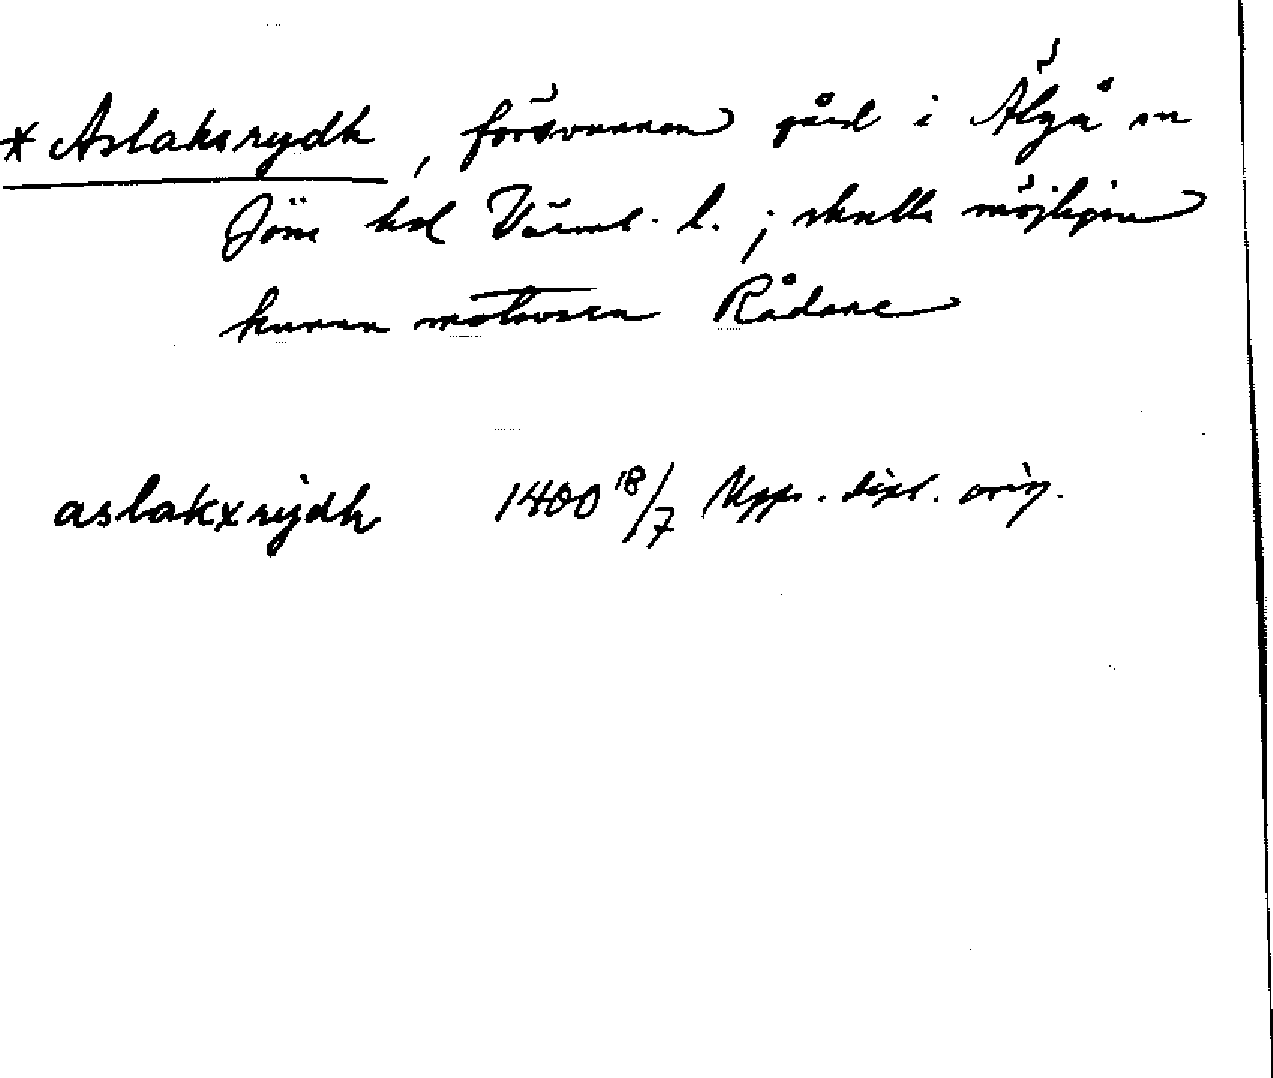 * Aslaksrydh, försvunnen gård i Älgå sn
Jösse hd Värml. l.; skulle möjligen
kunna motsvara Rådane
aslakxrydh 1400 18/7 Upps. dipl. orig.